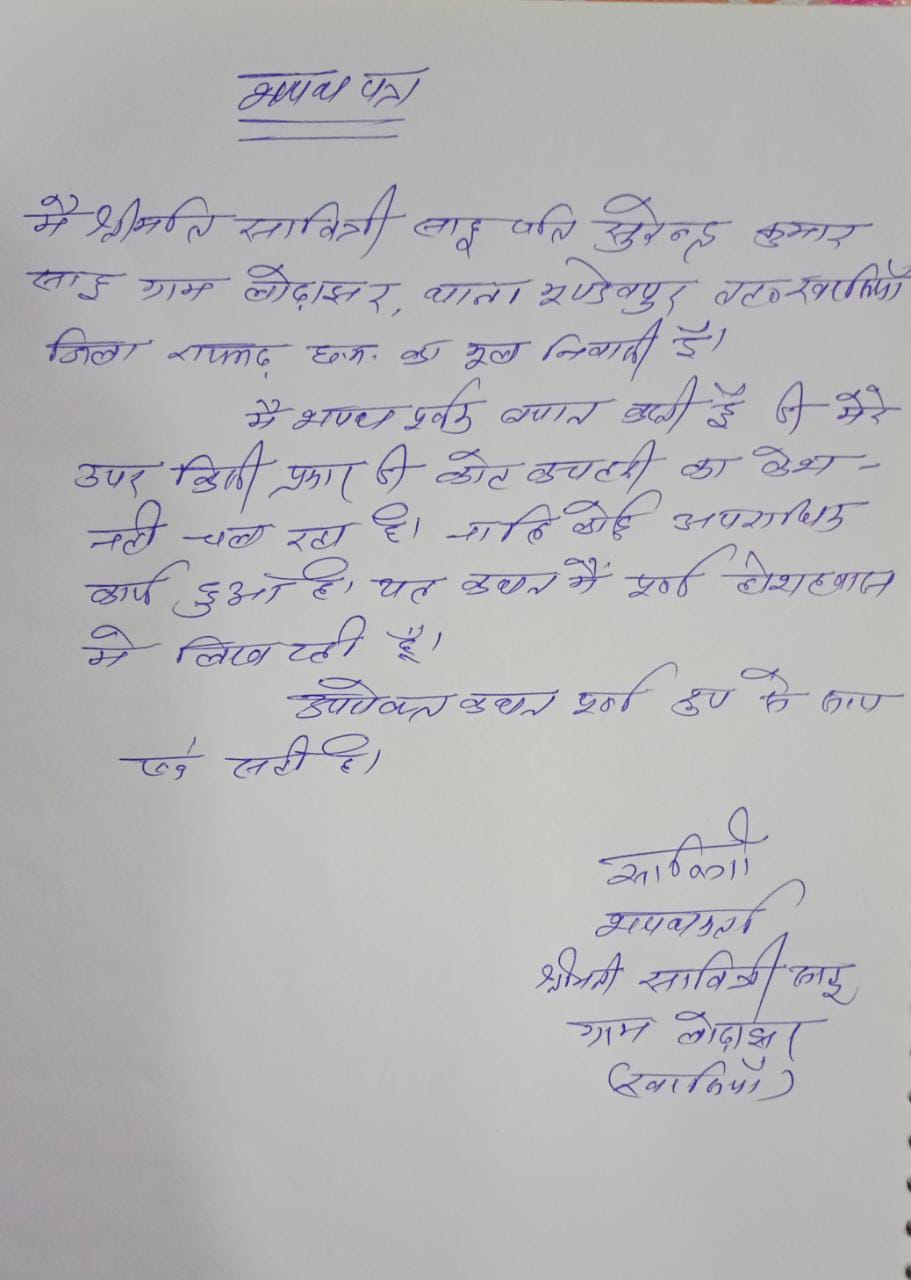 शपथ पत्र
मै श्रीमति सावित्री साहू पति सुरेन्द्र कुमार
साहू ग्राम लोढ़ाझर, थाना भूपदेवपुर तह० खरसिया
जिला रायगढ़ छ.ग. का मूल निवासी हूँ।
मै शपथ पूर्वक बयान करती हूँ की मेरे
उपर किसी प्रकार की कोट कचहरी का केश -
नही चल रहा है। ना हि कोई अपराधिक
कार्य हुआ है। यह कथन मैं पूर्ण होशहवास
मे लिख रही हूँ।
उपरोक्त कथन पूर्ण रूप से सत्य
एवं सही है।
सावित्री
शपथकर्ता
श्रीमती सावित्री साहू
ग्राम लोढ़ाझर
(खरसिया)